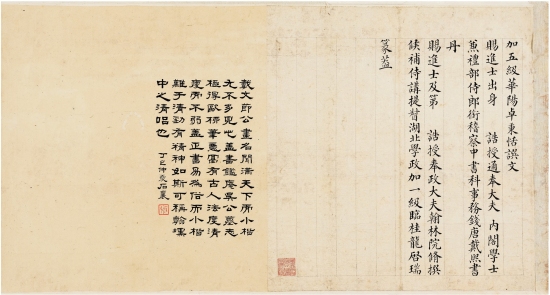 加五級華陽卓秉恬譔文
賜進士出身 誥授通奉大夫 內閣學士
兼禮部侍郎銜稽察中書科事務錢唐戴熙書
丹
賜進士及第 誥授奉政大夫翰林院脩撰
候補侍講提督湖北學政加一級臨桂龍啟瑞
篆蓋
戴文節公畫名聞滿天下而小楷
尤不多見此蓋書鑑庵吳公墓志
極得歐柳筆意富有古人法度清
瘦而不弱蓋正書易為俗而小楷
難于清勁有精神如斯可稱翰墨
中之清唱也 丁巳仲夏石巢